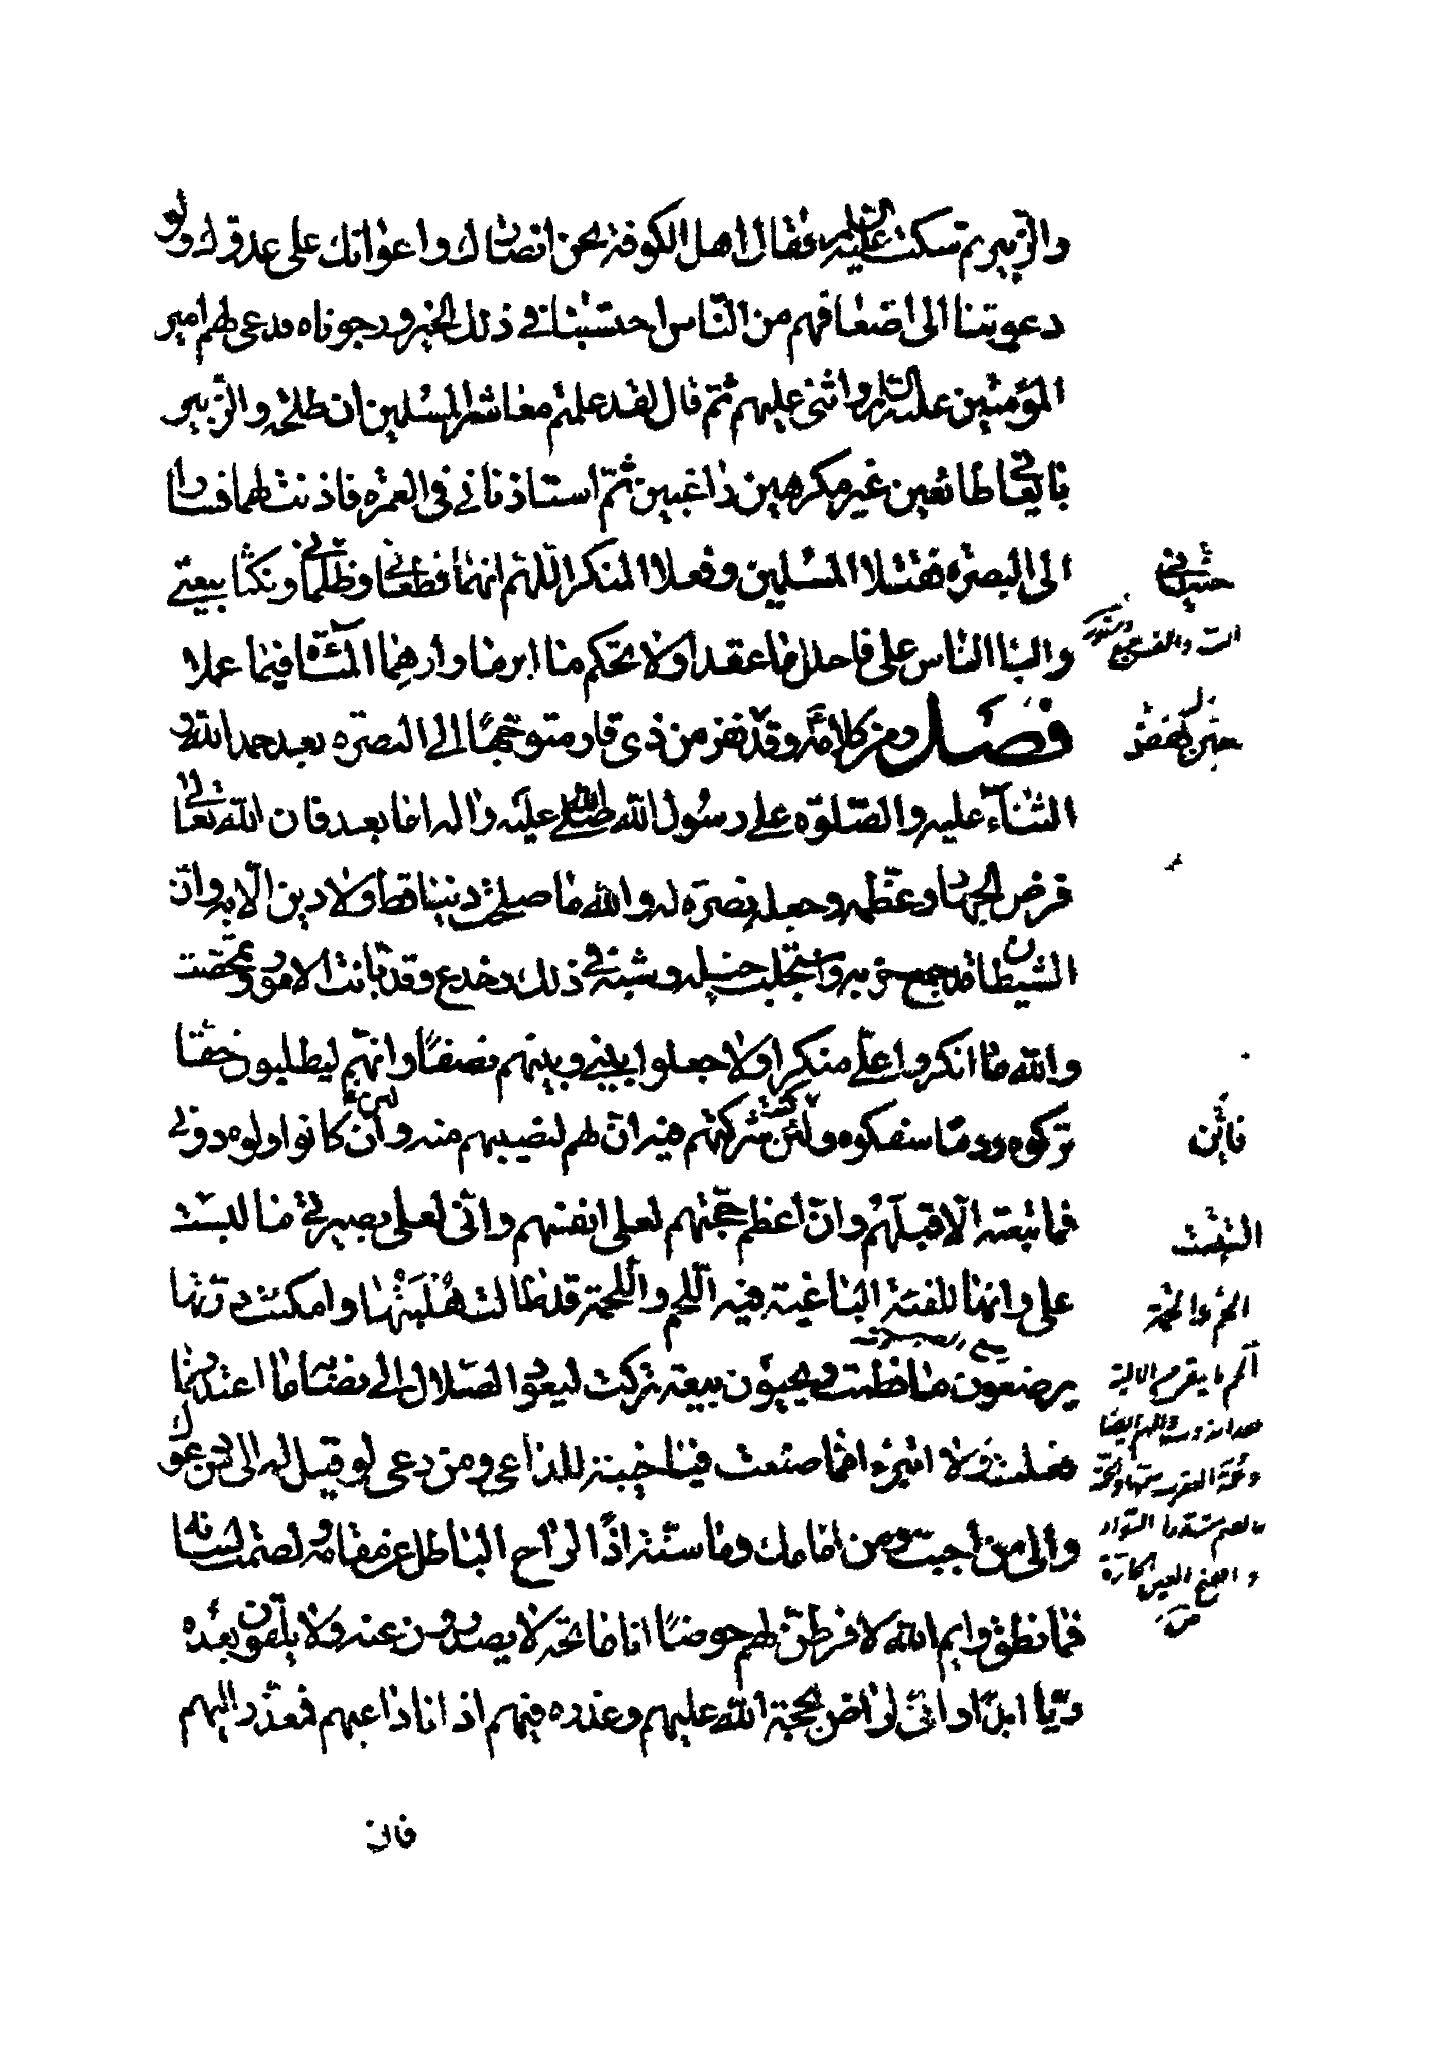 والزبير ثم سكت عليه السلام فقال اهل الكوفة نحن انصارك واعوانك على عدوك ولو
دعوتنا الى اضعافهم من الناس احتسبنا في ذلك الخير ورجوناه فدعى لهم امير
المؤمنين عليه السلام واثنى عليهم ثم قال لقد علمتم معاشر المسلمين ان طلحة والزبير
بايعاني طائعين غير مكرهين راغبين ثم استاذناني في العمرة فاذنت لهما فسارا
الى البصرة فقتلا المسلمين وفعلا المنكر اللهم انهما قطعاني وظلماني ونكثا بيعتي
والبا الناس علي فاحلل ما عقدا ولا تحكم ما ابرما وارهما المساءة فيما عملا
فصل ومن كلامه وقد نفر من ذي قار متوجها الى البصرة بعد حمد الله و
الثناء عليه والصلوة على رسول الله صلى الله عليه واله اما بعد فان الله تعالى
فرض الجهاد وعظمه وجعله نصرة له والله ما صلحت دنيا قط ولا دين الا به وان
الشيطان قد جمع حزبه واستجلب خيله وشبه في ذلك وخدع وقد بانت الامور وتمحصت
والله ما انكروا علي منكرا ولا جعلوا بيني وبينهم نصفا وانهم ليطلبون حقا
تركوه ودما سفكوه ولئن كنت شركتهم فيه ان لهم لنصيبهم منه وان كانوا ولوه دوني
فما تبعته الا قبلهم وان اعظم حجتهم لعلى انفسهم واني لعلى بصيرتي ما لبست
علي وانها للفئة الباغية فيه اللحم واللحمة قد طالت هلبتها وامكنت درتها
يرضعون ما فطمت ويحيون بيعة تركت ليعود الضلال الى نصابه ما اعتذر مما
فعلت ولا اتبرء مما صنعت فيا خيبة للداعي ومن دعى لو قيل له الى من دعوك
والى من اجبت ومن امامك وما سنته اذا لزاح الباطل عن مقامه ولصمت لسانه
فما نطق وايم الله لافرطن لهم حوضا انا ماتحه لا يصدرون عنه ولا يلقون بعده
ريا ابدا واني لراض بحجة الله عليهم وعذره فيهم اذ انا داعيهم فمعذر اليهم
فان
فائن